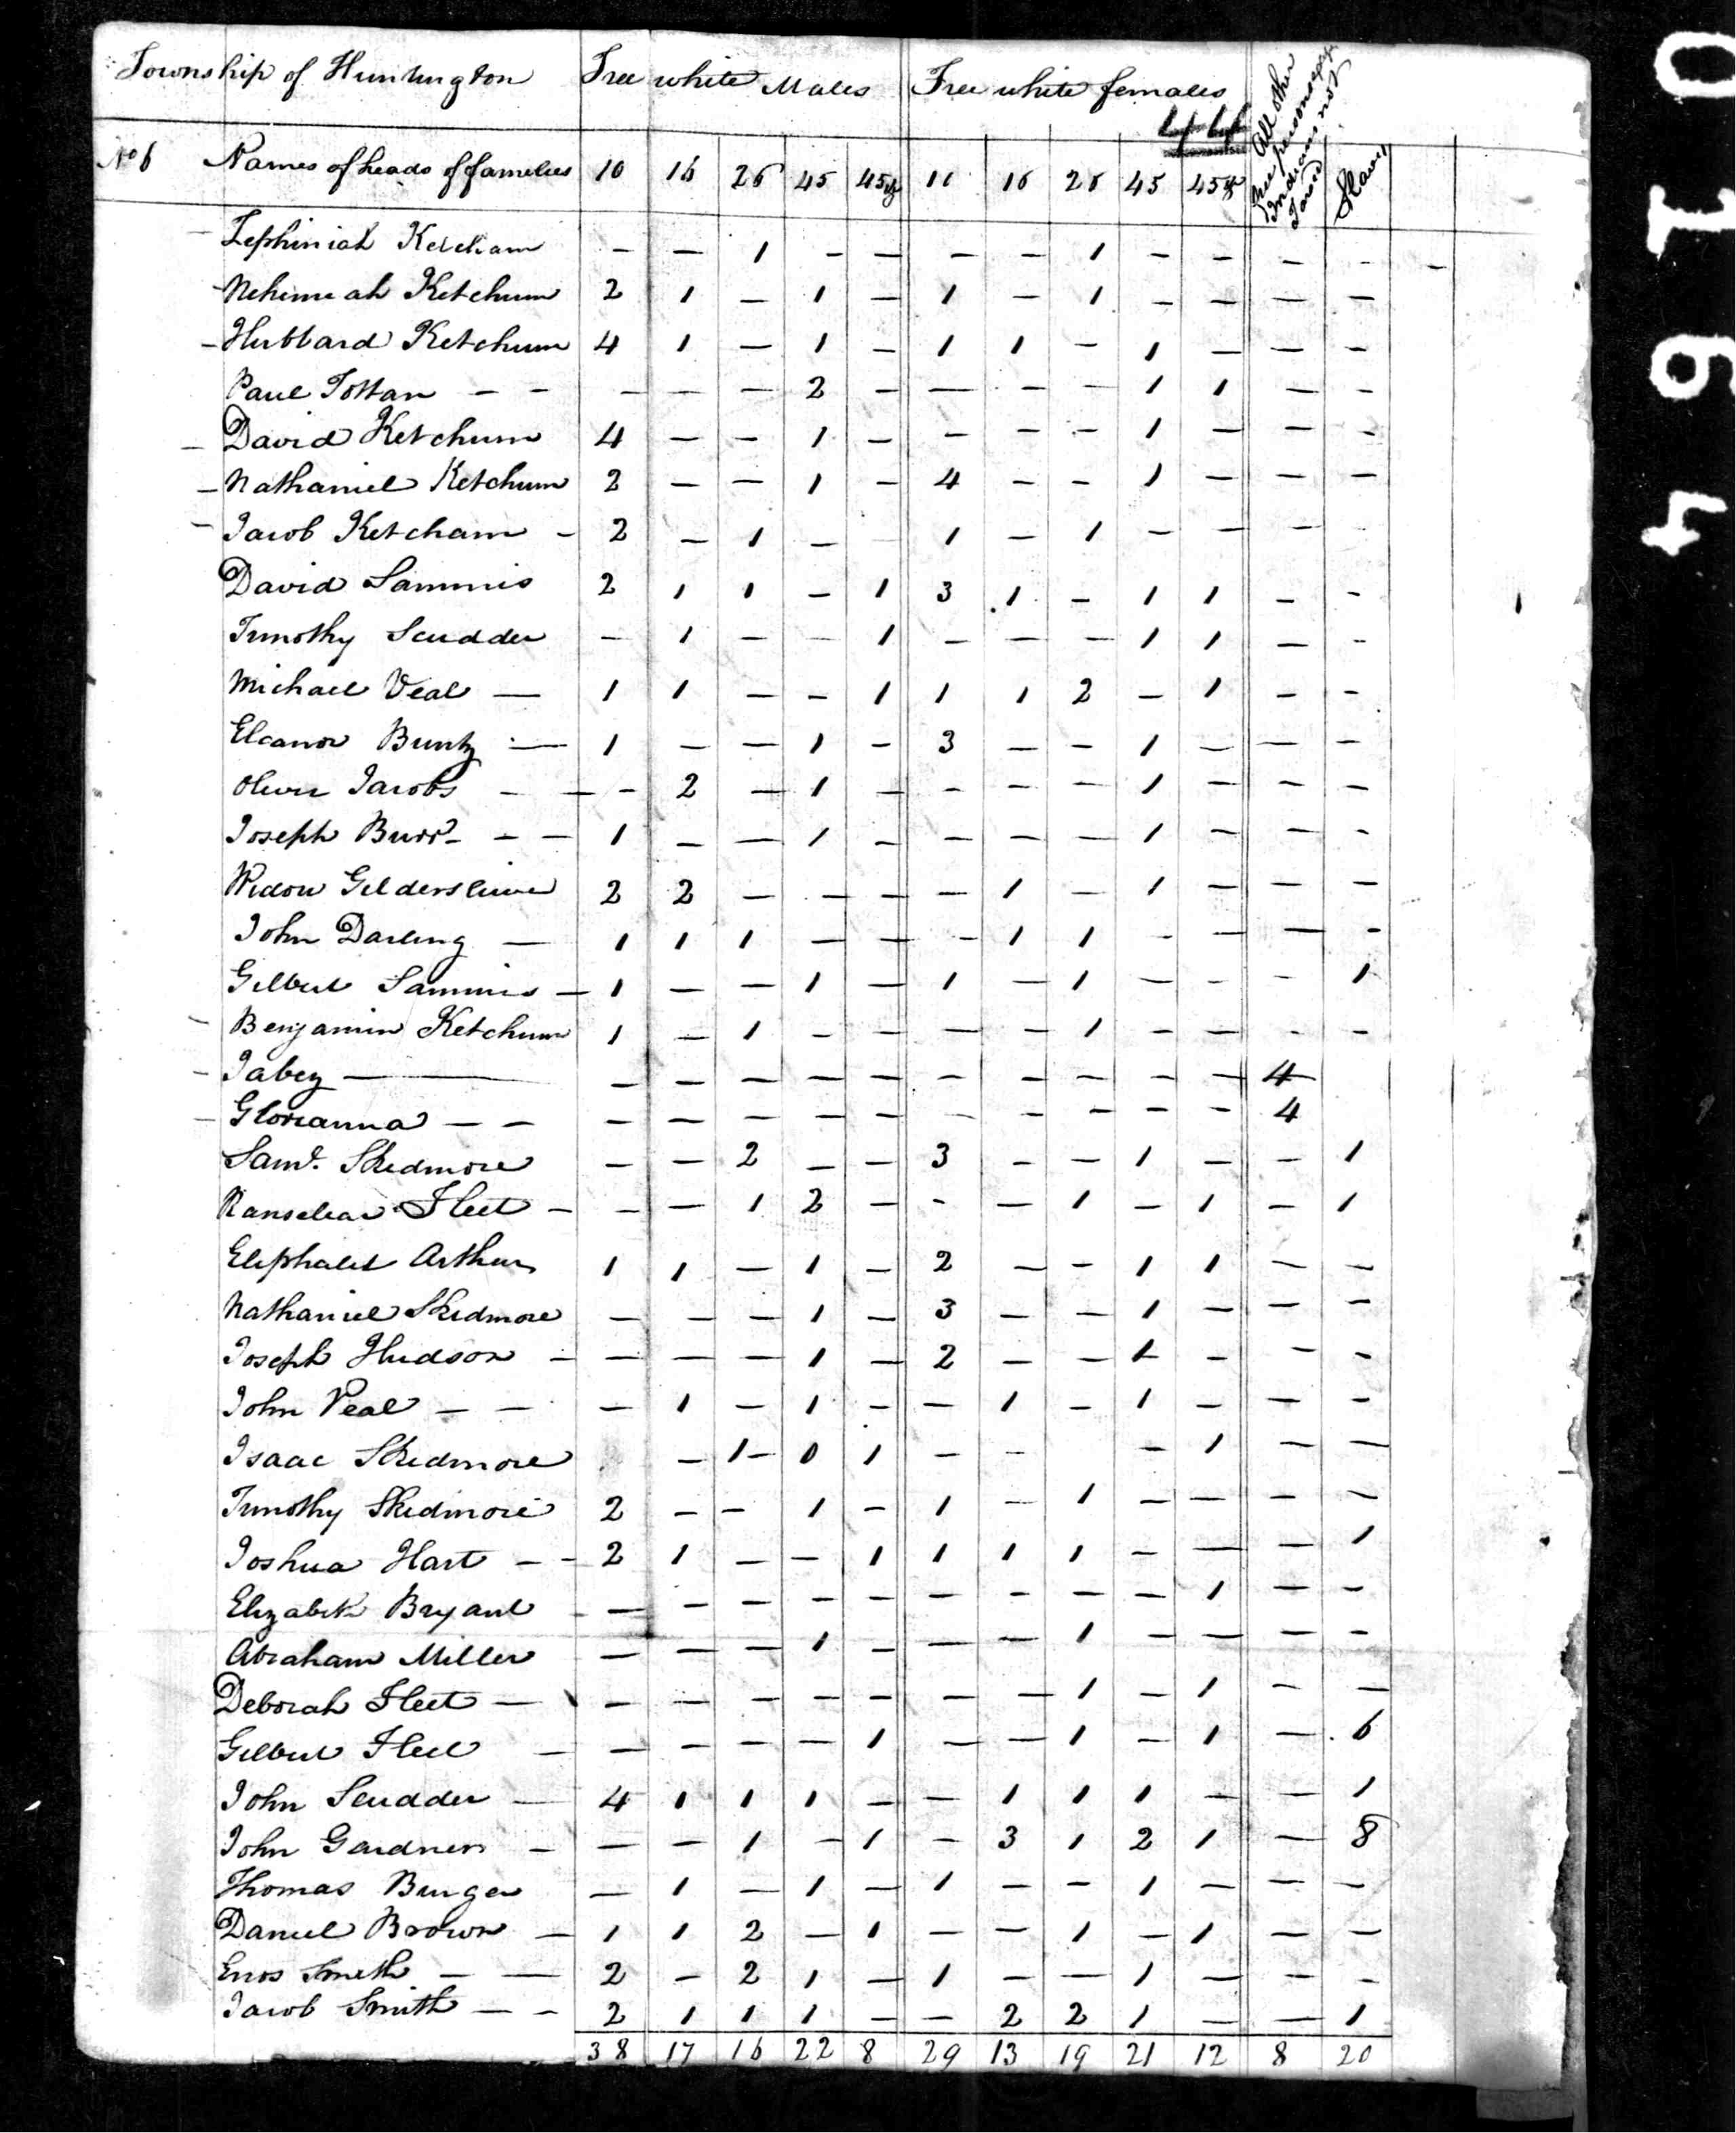 Township of Huntington Free white Males Free white females All other free persons except Indians not Taxed Slaves
No 6 Names of heads of families 10 16 26 45 45 10 16 26 45 45
Zephiniah Ketcham - - 1 - - - - 1 - - - - -
Nehimeah Ketchum 2 1 - 1 - 1 - 1 - - - -
Hubbard Ketchum 4 1 - 1 - 1 1 - 1 - - -
Paul Tottan - - - - - 2 - - - - 1 1 - -
David Ketchum 4 - - 1 - - - - 1 - - -
Nathaniel Ketchum 2 - - 1 - 4 - - 1 - - -
Jacob Ketcham - 2 - 1 - - 1 - 1 - - - -
David Sammis 2 1 1 - 1 3 1 - 1 1 - -
Timothy Scudder - 1 - - 1 - - - 1 1 - -
Michael Veal - 1 1 - - 1 1 1 2 - 1 - -
Eleanor Bunty - 1 - - 1 - 3 - - 1 - - -
Oliver Jacobs - - - 2 - 1 - - - - 1 - - -
Joseph Burr - - 1 - - 1 - - - - 1 - - -
Widow Gildersleive 2 2 - - - - 1 - 1 - - -
John Darling - 1 1 1 - - - 1 1 - - - -
Gilbert Sammis - 1 - - 1 - 1 - 1 - - - 1
Benjamin Ketchum 1 - 1 - - - - 1 - - - -
Jabez - - - - - - - - - - - 4
Glorianna - - - - - - - - - - - - 4
Saml. Skedmore - - 2 - - 3 - - 1 - - 1
Ranselear Fleet - - - 1 2 - - - 1 - 1 - 1
Eliphalet Arthur 1 1 - 1 - 2 - - 1 1 - -
Nathaniel Skedmore - - - 1 - 3 - - 1 - - -
Joseph Hudson - - - - 1 - 2 - - 1 - - -
John Veal - - - 1 - 1 - - 1 - 1 - - -
Isaac Skedmore - 1 - 0 1 - - - 1 - -
Timothy Skedmore 2 - - 1 - 1 - 1 - - - -
Joshua Hart - - 2 1 - - 1 1 1 1 - - - 1
Elizabeth Bryant - - - - - - - - - - 1 - -
Abraham Miller - - - 1 - - - 1 - - - -
Deborah Fleet - - - - - - - - 1 - 1 - -
Gilbert Fleet - - - - - 1 - - 1 - 1 - 6
John Scudder - 4 1 1 1 - - 1 1 1 - - 1
John Gardner - - - 1 - 1 - 3 1 2 1 - 8
Thomas Bunger - 1 - 1 - 1 - - 1 - - -
Daniel Brown - 1 1 2 - 1 - - 1 - 1 - -
Enos Smith - - 2 - 2 1 - 1 - - 1 - - -
Jacob Smith - - 2 1 1 1 - - 2 2 1 - - 1
38 17 16 22 8 29 13 19 21 12 8 20
0164